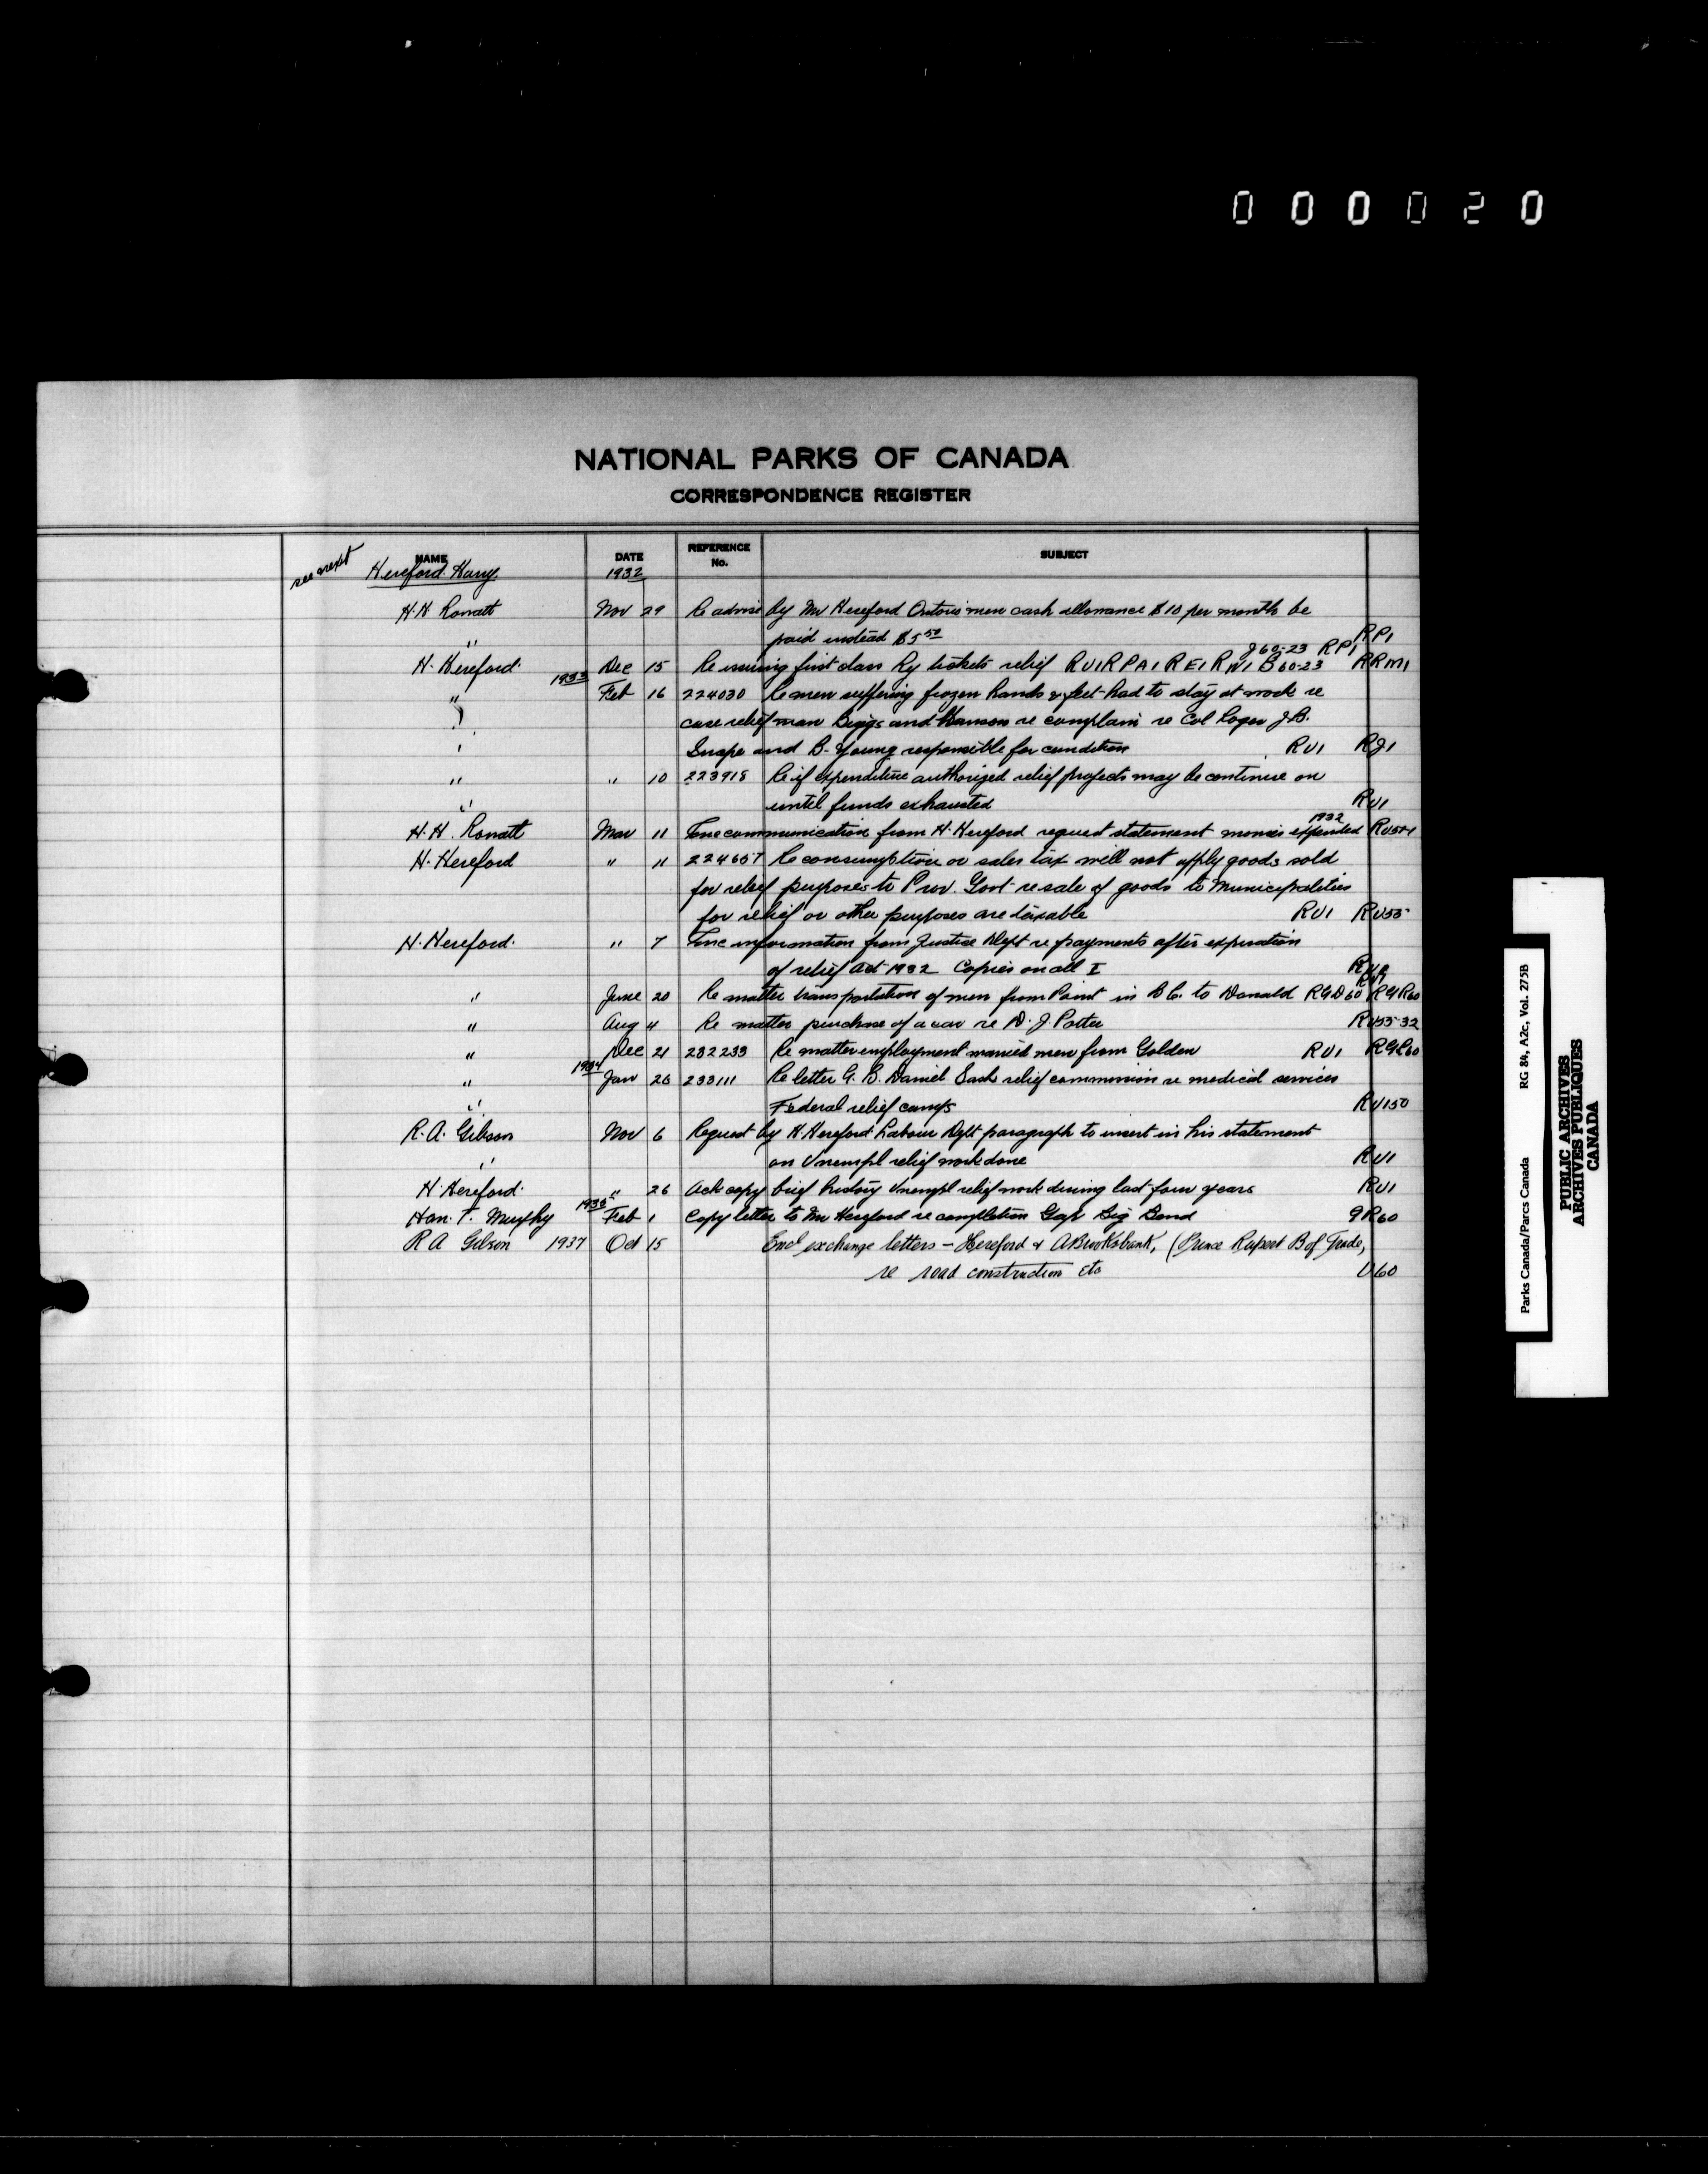 000020
NATIONAL PARKS OF CANADA
CORRESPONDENCE REGISTER
NAME DATE REFERENCE No. SUBJECT
see next Hereford Harry 1932
H.H. Rowatt Nov 29 Re advise by Mr Hereford Ontario men cash allowance $10 per month be
" paid instead $5 50 RP1
J60-23 RP1
H. Hereford. Dec 15 Re issuing first class Ry tickets relief RU1 RPA1 RE1 RW1 B60-23 RRM1
1933
" Feb 16 224030 Re men suffering frozen hands & feet had to stay at work re
" case relief man Biggs and Hanson re complain re Col Roger J.B.
' Snape and B. Young responsible for condition RU1 RJ1
" " 10 223918 Re if expenditure authorized relief projects may be continue on
" until funds exhausted RU1
1932
H.H. Rowatt Mar 11 communication from H. Hereford request statement monies expended
H. Hereford " 11 224657 Re consumption or sales tax will not apply goods sold
for relief purposes to Prov. Govt resale of goods to Municipalities
for relief or other purposes are taxable RU1 RU55
H. Hereford. " 7 information from Justice Dept re payments after expiration
of relief Act 1932 Copies on all I
" June 20 Re matter transportation of men from Point in B.C. to Donald RGD60 RGR60
" Aug 4 Re matter purchase of a car re D. J. Potter RU55-32
" Dec 21 232233 Re matter employment married men from Golden RU1 RGR60
1934
" Jan 26 233111 Re letter G. B. Daniel Sask relief commission re medical services
" Federal relief camps RU150
R.A. Gibson Nov 6 Request by H. Hereford Labour Dept paragraph to insert in his statement
" on Unempl relief work done RU1
H Hereford. " 26 Ack copy brief history Unempl relief work during last four years RU1
1935
Hon. T. Murphy Feb 1 Copy letter to Mr Hereford re completion Gap Big Bend GR60
R A Gibson 1937 Oct 15 Encl exchange letters - Hereford & A Brooksbank, (Prince Rupert B of Trade,
re road construction etc U60
Parks Canada/Parcs Canada RG 84, A2c, Vol. 275B
PUBLIC ARCHIVES
ARCHIVES PUBLIQUES
CANADA